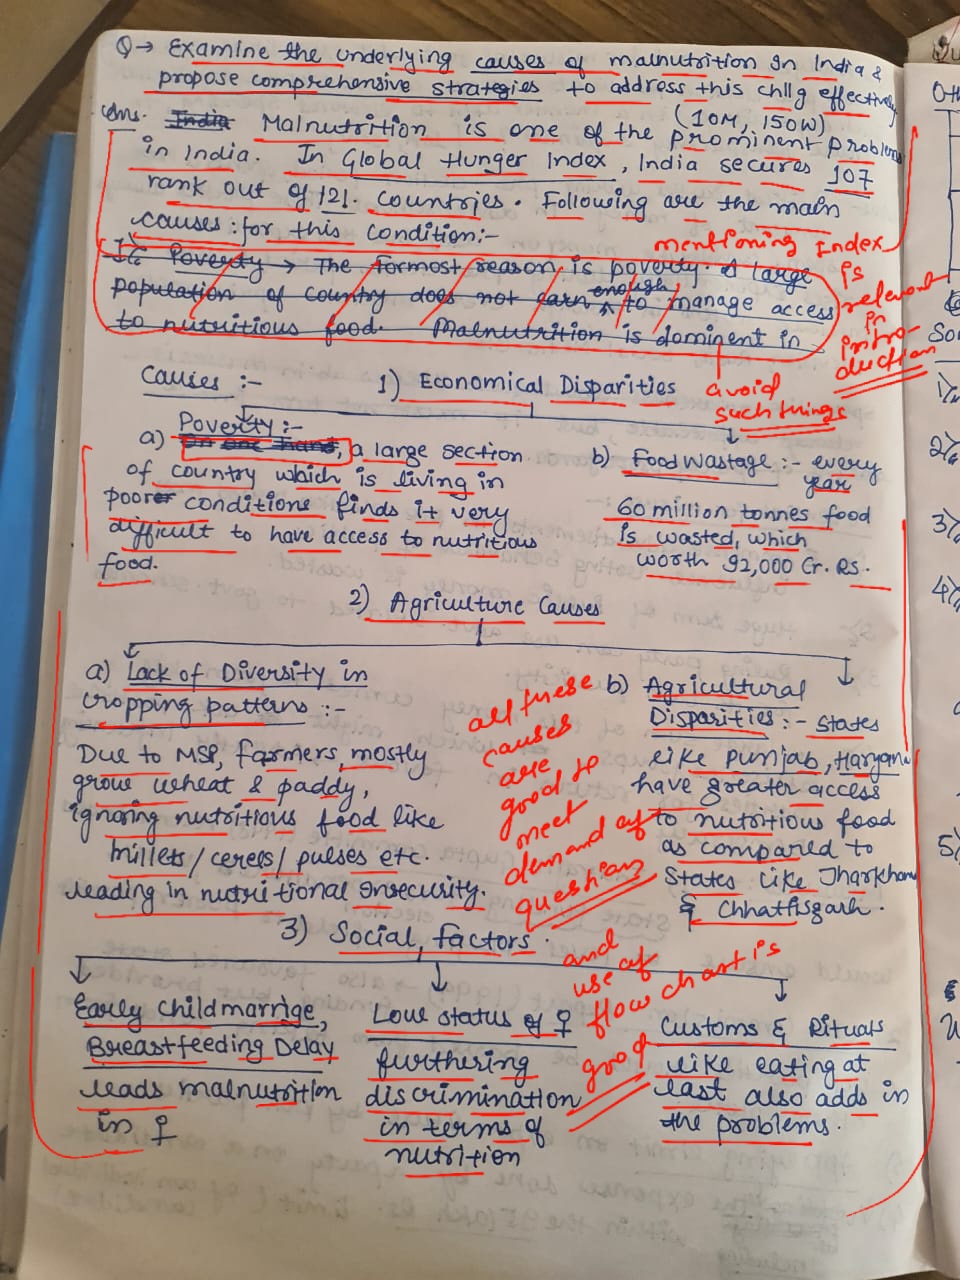 Q→ Examine the underlying causes of malnutrition in India &
propose comprehensive strategies to address this chllg effectively
(10M, 150W)
Ans. India Malnutrition is one of the prominent problem
in India. In Global Hunger Index, India secures 107
rank out of 121. countries. Following are the main
causes: for this condition:-
mentioning Index
is
relevant
in
intro-
duction
Poverty → The formost reason is poverty. A large
population of country does not earn enough to manage access
to nutritious food. Malnutrition is dominent in
avoid
such things
Causes :-
1) Economical Disparities
a) Poverty :-
on one hand, a large section
of country which is living in
poor conditions finds it very
difficult to have access to nutritious
food.
b) Food Wastage :- every
year
60 million tonnes food
is wasted, which
worth 92,000 Cr. RS.
2) Agriculture Causes
a) Lack of Diversity in
cropping patterns :-
Due to MSP, farmers, mostly
grow wheat & paddy,
ignoring nutritious food like
millets/cerels/pulses etc.
leading in nutritional insecurity.
all these
causes
are
good to
meet
demand of
question
b) Agricultural
Disparities :- States
like Punjab, Haryana
have greater access
to nutritious food
as compared to
States like Jharkhan
& Chhattisgarh.
3) Social factors.
and
use of
flow chart is
good
Early Childmarrige,
Breastfeeding Delay
leads malnutrition
in ♀
Low status of ♀
furthering
discrimination
in terms of
nutrition
Customs & Rituals
like eating at
last also adds in
the problems.